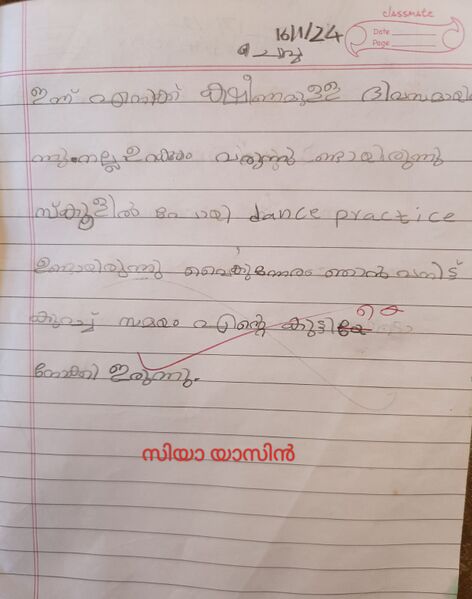 classmate
Date
Page
16/1/24
ചൊവ്വ
ഇന്ന് എനിക്ക് ക്ഷീണമുള്ള ദിവസമായി
ന്നു. നല്ല ഉറക്കം വരുന്നു ണ്ടായിരുന്നു
സ്കൂളിൽ പോയി dance practice
ഉണ്ടായിരുന്നു വൈകുന്നേരം ഞാൻ വന്നിട്ട്
കുറച്ച് സമയം എന്റെ കുട്ടി
നോക്കി ഇരുന്നു.
സിയാ യാസിൻ